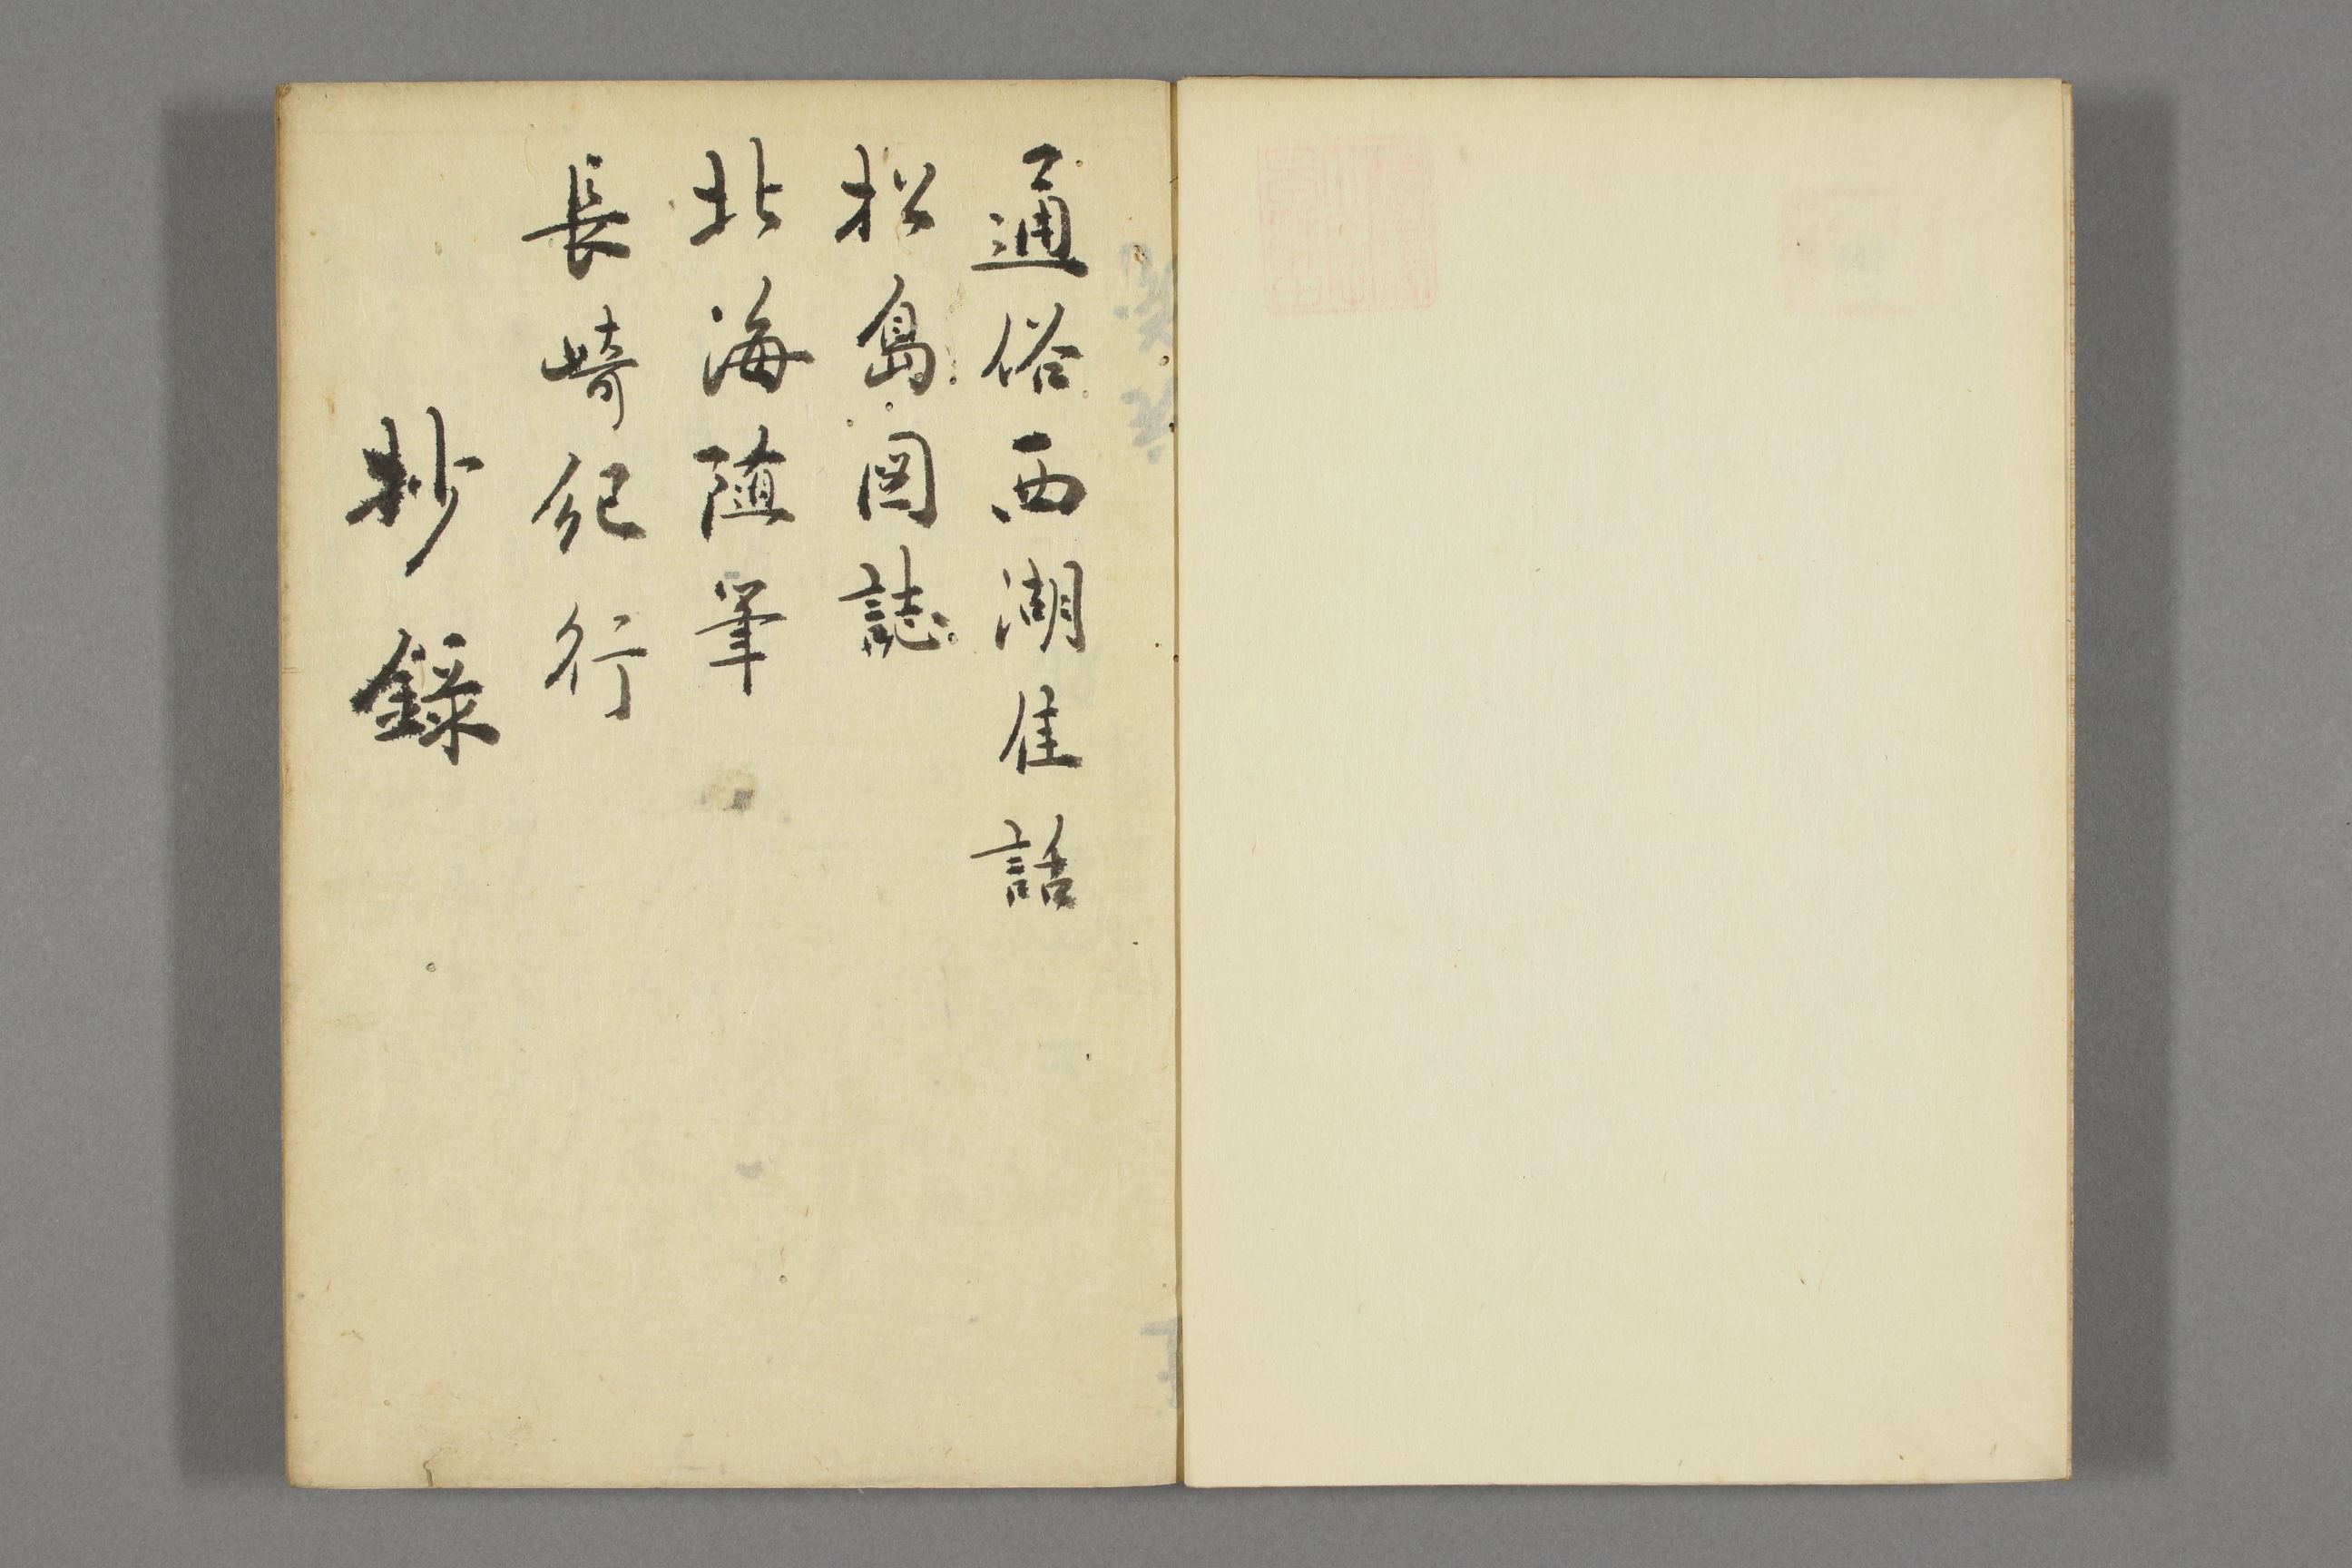 通俗西湖佳話
松島図誌
北海随筆
長崎紀行
抄録